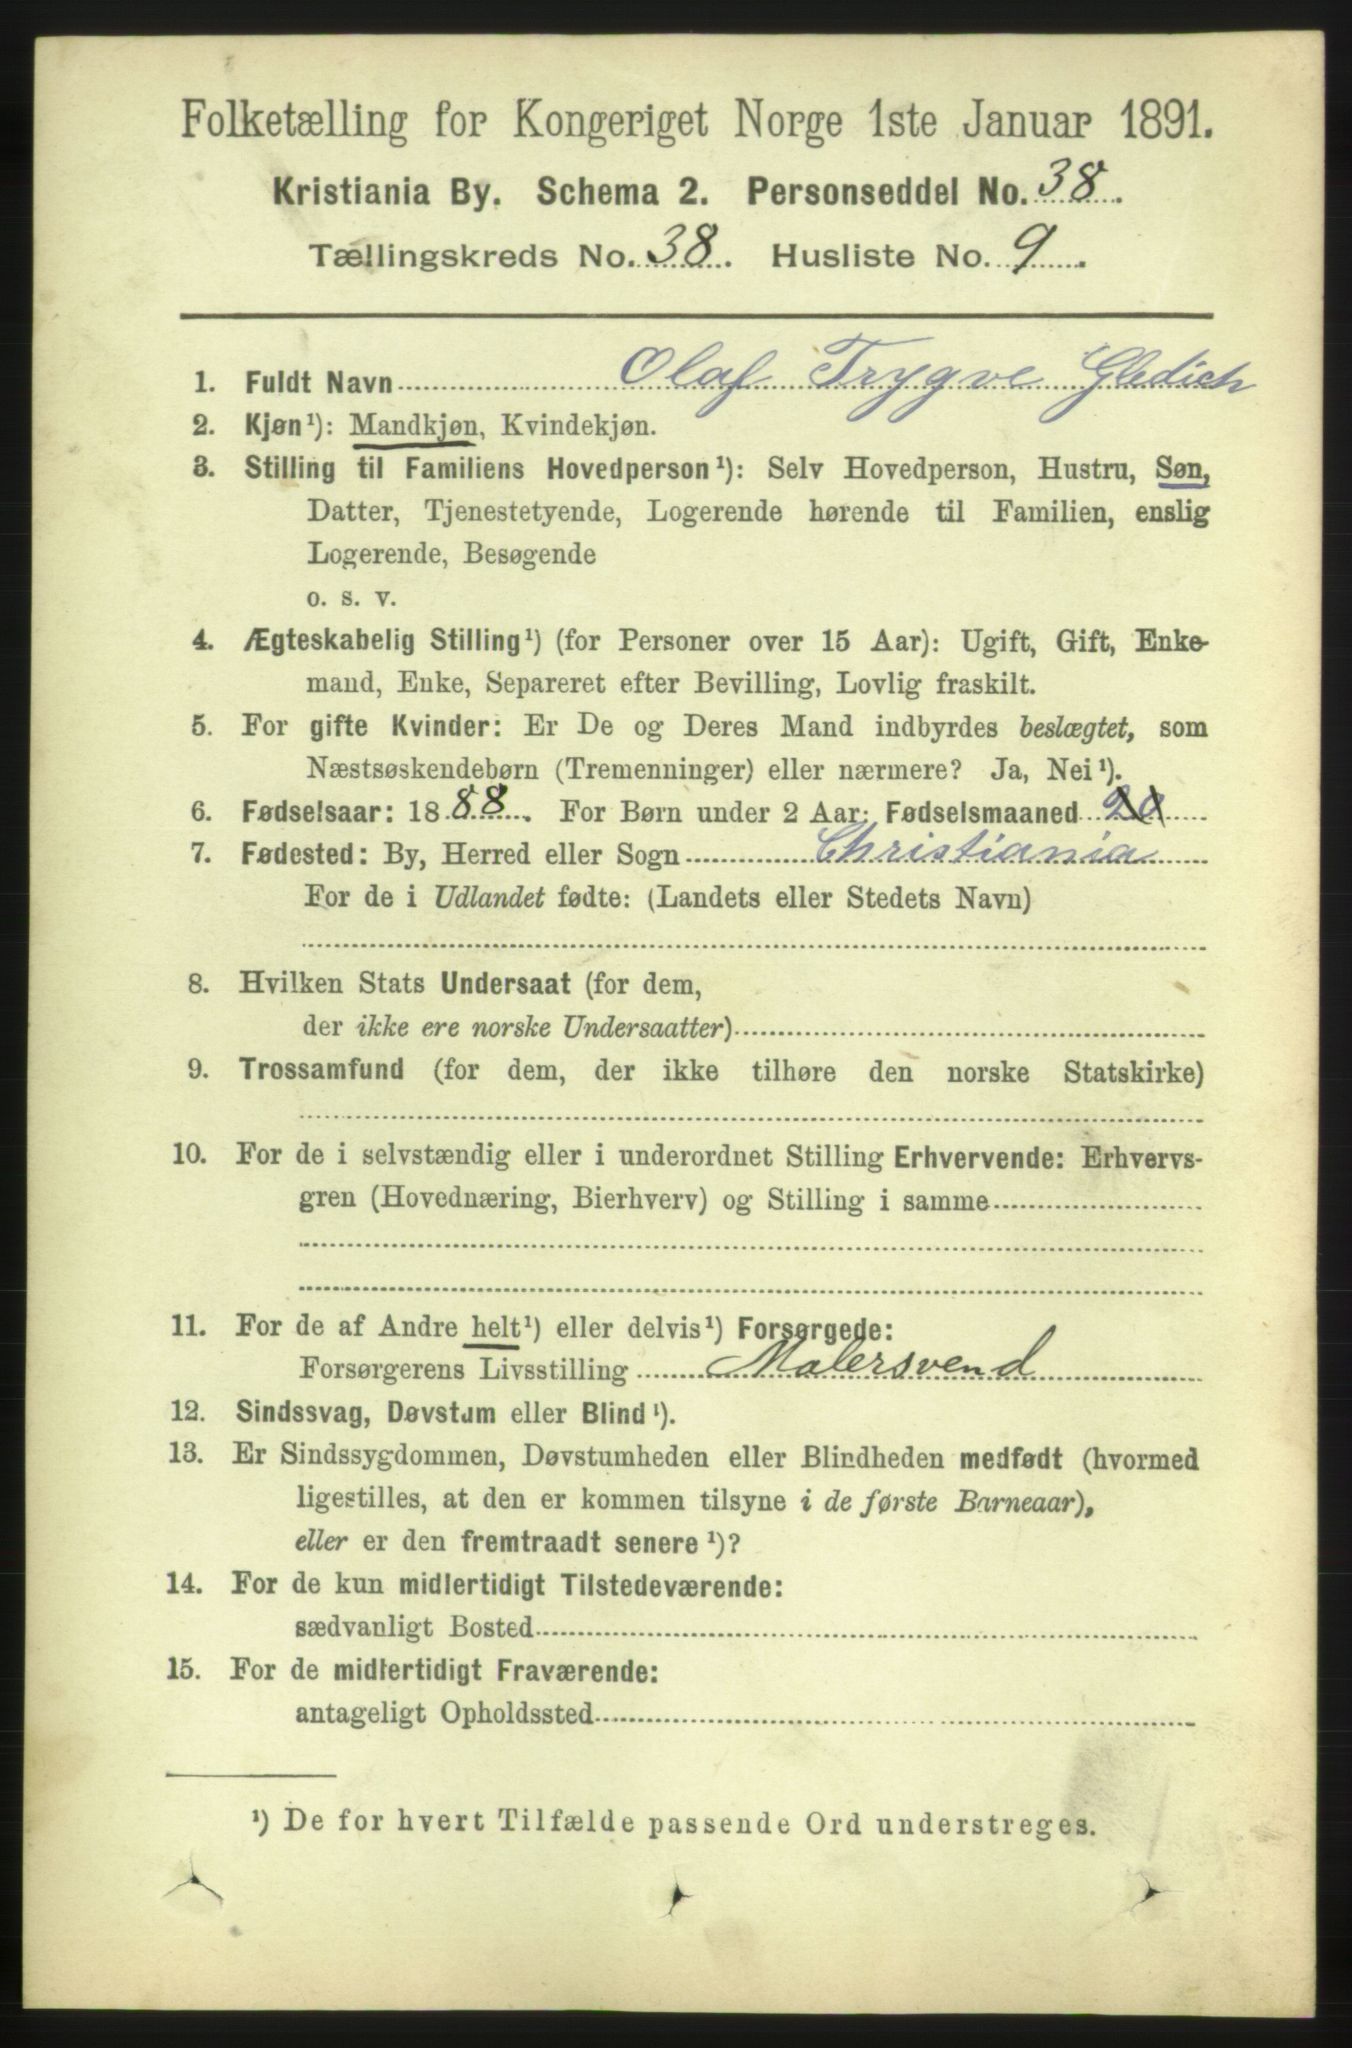 Folketælling for Kongeriget Norge 1ste Januar 1891.
Kristiania By. Schema 2. Personseddel No. 38.
Tællingskreds No. 38. Husliste No. 9.
1. Fuldt Navn Olaf Trygve Gledich
2. Kjøn¹): Mandkjøn, Kvindekjøn.
3. Stilling til Familiens Hovedperson¹): Selv Hovedperson, Hustru, Søn,
Datter, Tjenestetyende, Logerende hørende til Familien, enslig
Logerende, Besøgende
o. s. v.
4. Ægteskabelig Stilling¹) (for Personer over 15 Aar): Ugift, Gift, Enke-
mand, Enke, Separeret efter Bevilling, Lovlig fraskilt.
5. For gifte Kvinder: Er De og Deres Mand indbyrdes beslægtet, som
Næstsøskendebørn (Tremenninger) eller nærmere? Ja, Nei¹).
6. Fødselsaar: 1888. For Børn under 2 Aar: Fødselsmaaned
7. Fødested: By, Herred eller Sogn Christiania
For de i Udlandet fødte: (Landets eller Stedets Navn)
8. Hvilken Stats Undersaat (for dem,
der ikke ere norske Undersaatter)
9. Trossamfund (for dem, der ikke tilhøre den norske Statskirke)
10. For de i selvstændig eller i underordnet Stilling Erhvervende: Erhvervs-
gren (Hovednæring, Bierhverv) og Stilling i samme
11. For de af Andre helt¹) eller delvis¹) Forsørgede:
Forsørgerens Livsstilling Malersvend
12. Sindssvag, Døvstum eller Blind¹).
13. Er Sindssygdommen, Døvstumheden eller Blindheden medfødt (hvormed
ligestilles, at den er kommen tilsyne i de første Barneaar),
eller er den fremtraadt senere¹)?
14. For de kun midlertidigt Tilstedeværende:
sædvanligt Bosted
15. For de midlertidigt Fraværende:
antageligt Opholdssted
¹) De for hvert Tilfælde passende Ord understreges.